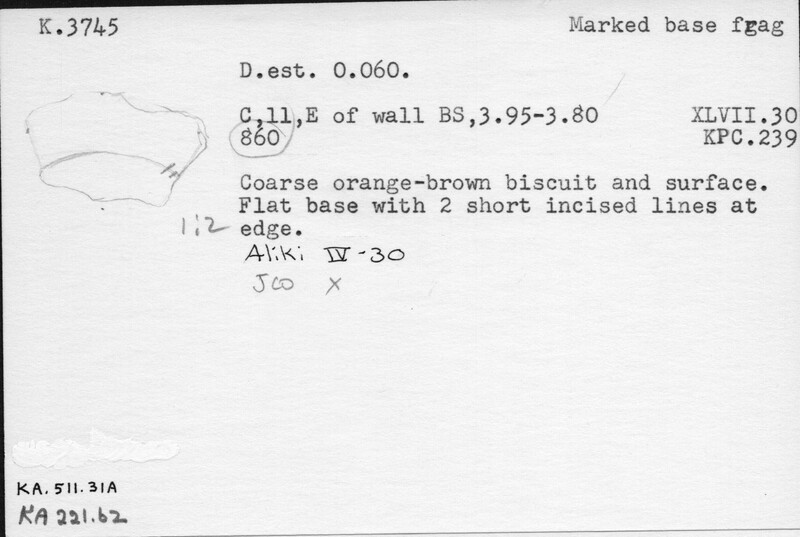 K.3745 Marked base frag
D.est. 0.060.
C,11,E of wall BS,3.95-3.80 XLVII.30
860 KPC.239
Coarse orange-brown biscuit and surface.
Flat base with 2 short incised lines at
1:2 edge.
Aliki IV-30
JCO X
KA.511.31A
KA 221.62